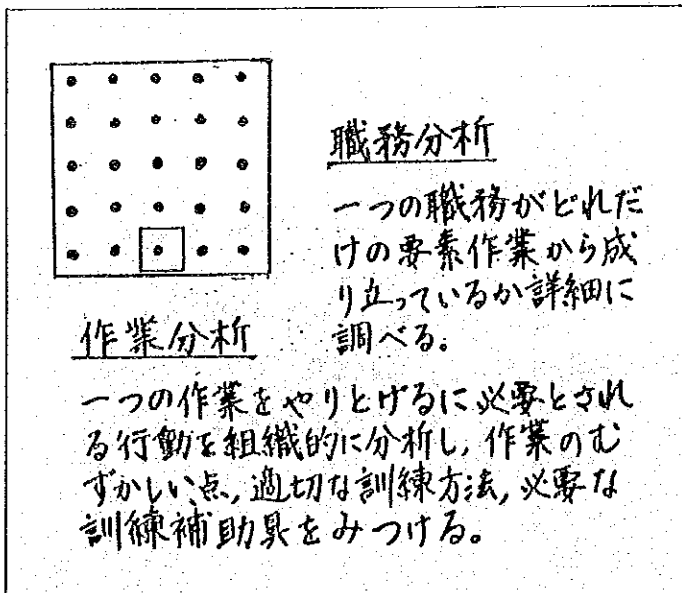 職務分析
一つの職務がどれだ
けの要素作業から成
り立っているか詳細に
調べる。
作業分析
一つの作業をやりとげるに必要とされ
る行動を組織的に分析し,作業のむ
ずかしい点,適切な訓練方法,必要な
訓練補助具をみつける。